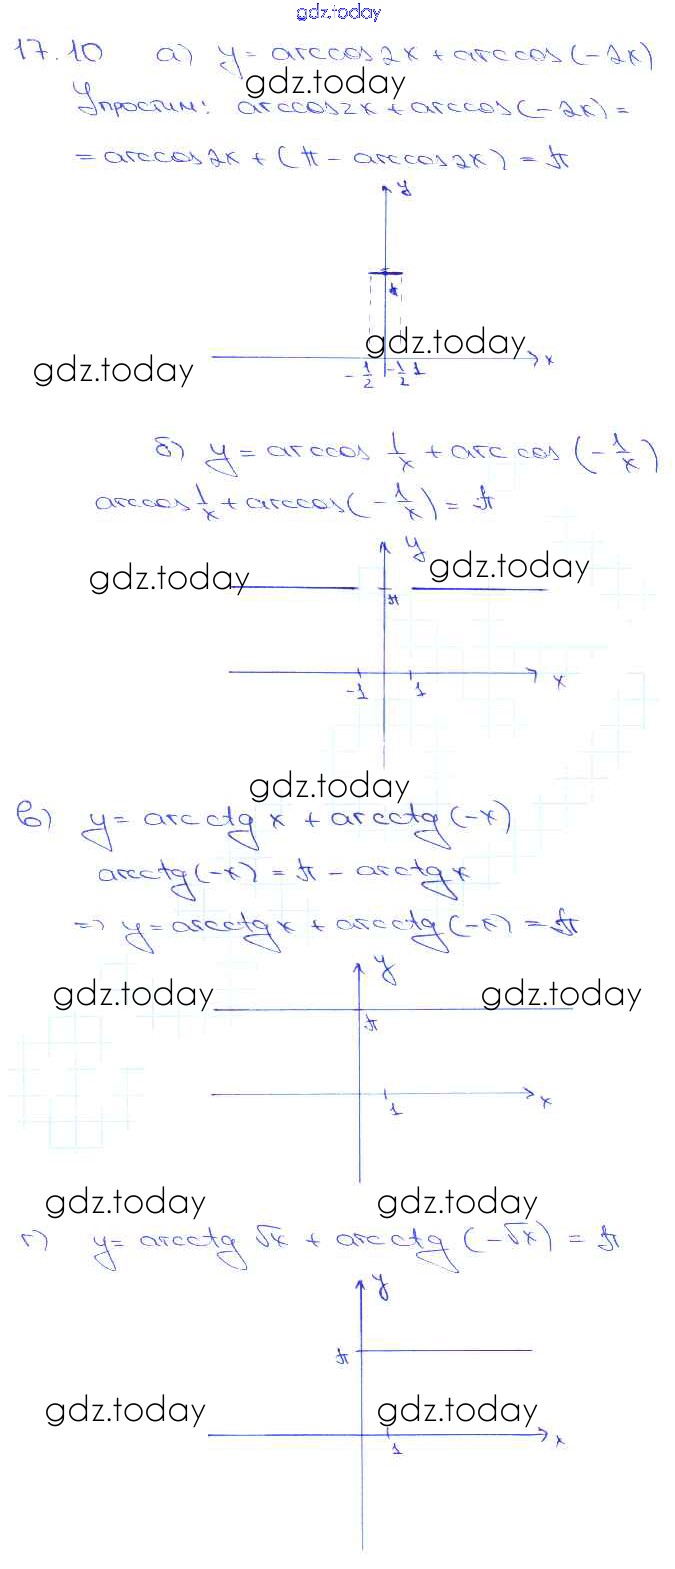 gdz.today
17.10 а) y = arccos2x + arccos(-2x)
gdz.today
Упростим: arccos2x + arccos(-2x) =
= arccos2x + (π - arccos2x) = π
y
π
gdz.today
gdz.today
x
-1/2 -1/2 1
б) y = arccos 1/x + arccos (-1/x)
arccos 1/x + arccos(-1/x) = π
y
gdz.today gdz.today
π
-1 1 x
gdz.today
в) y = arcctg x + arcctg(-x)
arcctg(-x) = π - arctgx
=> y = arcctgx + arcctg(-x) = π
y
gdz.today gdz.today
π
1 x
gdz.today gdz.today
г) y = arcctg √x + arcctg (-√x) = π
y
π
gdz.today gdz.today
1 x